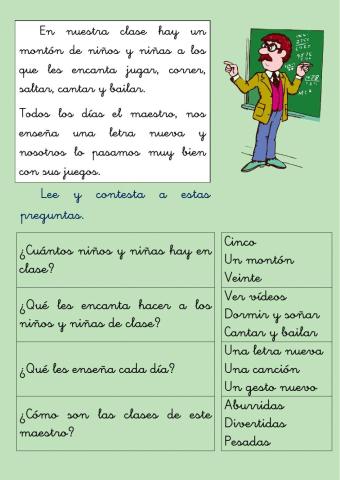 En nuestra clase hay un
montón de niños y niñas a los
que les encanta jugar, correr,
saltar, cantar y bailar.
Todos los días el maestro, nos
enseña una letra nueva y
nosotros lo pasamos muy bien
con sus juegos.
Lee y contesta a estas
preguntas.
¿Cuántos niños y niñas hay en
clase?
Cinco
Un montón
Veinte
¿Qué les encanta hacer a los
niños y niñas de clase?
Ver vídeos
Dormir y soñar
Cantar y bailar
¿Qué les enseña cada día?
Una letra nueva
Una canción
Un gesto nuevo
¿Cómo son las clases de este
maestro?
Aburridas
Divertidas
Pesadas